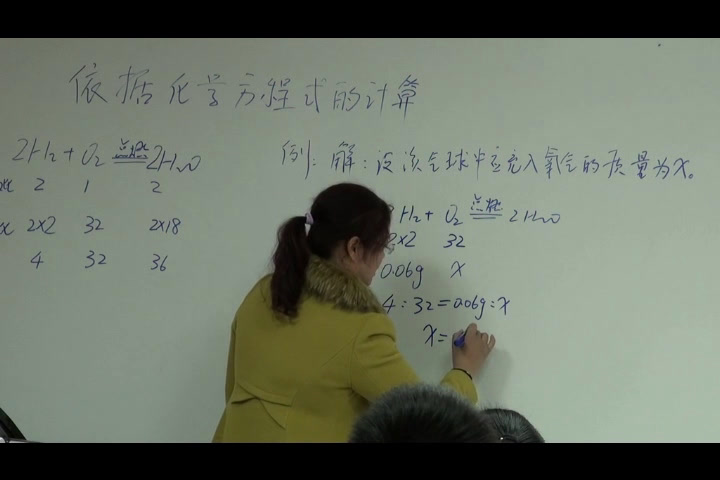 依据化学方程式的计算
2H₂ + O₂ 点燃 2H₂O
2 1 2
2×2 32 2×18
4 32 36
例: 解: 设该气球中应充入氧气的质量为x。
H₂ + O₂ 点燃 2H₂O
2×2 32
0.06g x
4 : 32 = 0.06g : x
x =